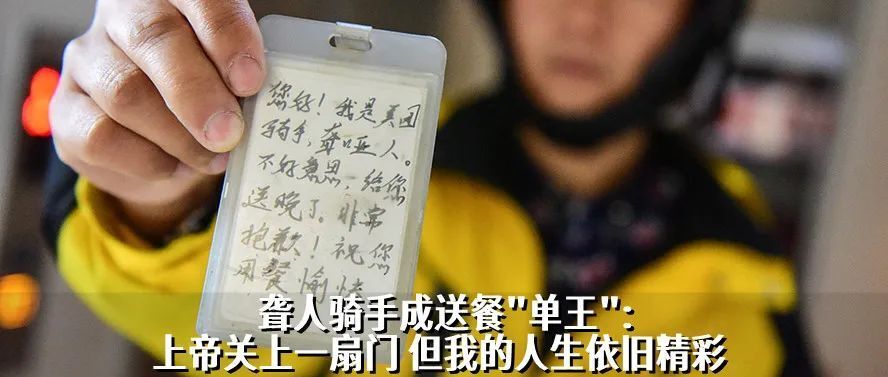 您好！我是美团
骑手，聋哑人。
不好意思，给您
送晚了。非常
抱歉！祝您
用餐愉快
聋人骑手成送餐"单王"：
上帝关上一扇门 但我的人生依旧精彩